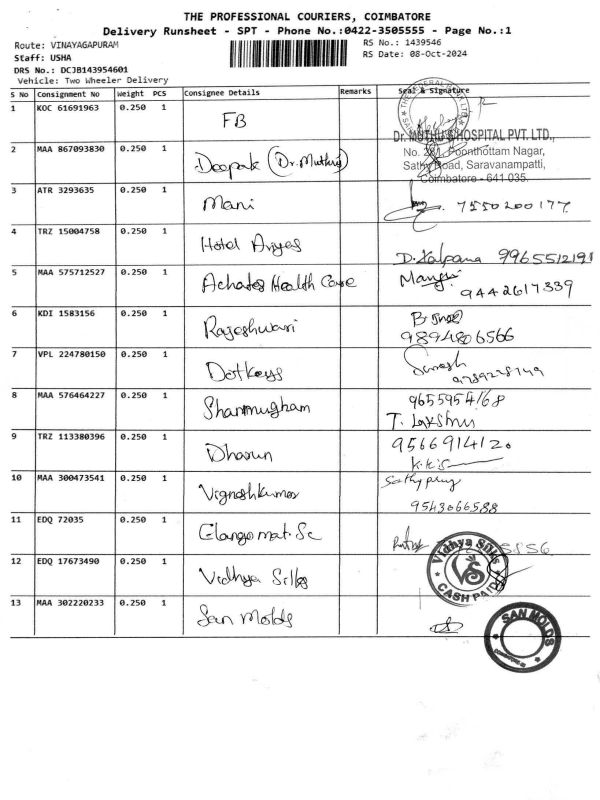 THE PROFESSIONAL COURIERS, COIMBATORE
Delivery Runsheet - SPT - Phone No.:0422-3505555 - Page No.:1
Route: VINAYAGAPURAM
RS No.: 1439546
Staff: USHA
RS Date: 08-Oct-2024
DRS No.: DCJB143954601
Vehicle: Two Wheeler Delivery
S No Consignment No Weight PCS Consignee Details Remarks Seal & Signature
1 KOC 61691963 0.250 1 FB
Dr. MUTHU'S HOSPITAL PVT. LTD.,
Poonthottam Nagar,
Road, Saravanampatti,
Coimbatore - 641 035.
2 MAA 867093830 0.250 1 Deepak (Dr. Muthus)
3 ATR 3293635 0.250 1 Mani 7550200177
4 TRZ 15004758 0.250 1 Hotel Ariyas D. Kalpana 9965512191
5 MAA 575712527 0.250 1 Achates Health Care 9442617339
6 KDI 1583156 0.250 1 Rajeshwari 9894806566
7 VPL 224780150 0.250 1 Dotkeys
8 MAA 576464227 0.250 1 Shanmugham 9655954168
T. Lakshmi
9 TRZ 113380396 0.250 1 Dharun 9566914120
10 MAA 300473541 0.250 1 Vigneshkumar
9543066588
11 EDQ 72035 0.250 1 Elango mat. Sc
12 EDQ 17673490 0.250 1 Vidhya Silks
Vidhya Silks
VS
CASH PAID
13 MAA 302220233 0.250 1 San Molds
SAN MOLDS